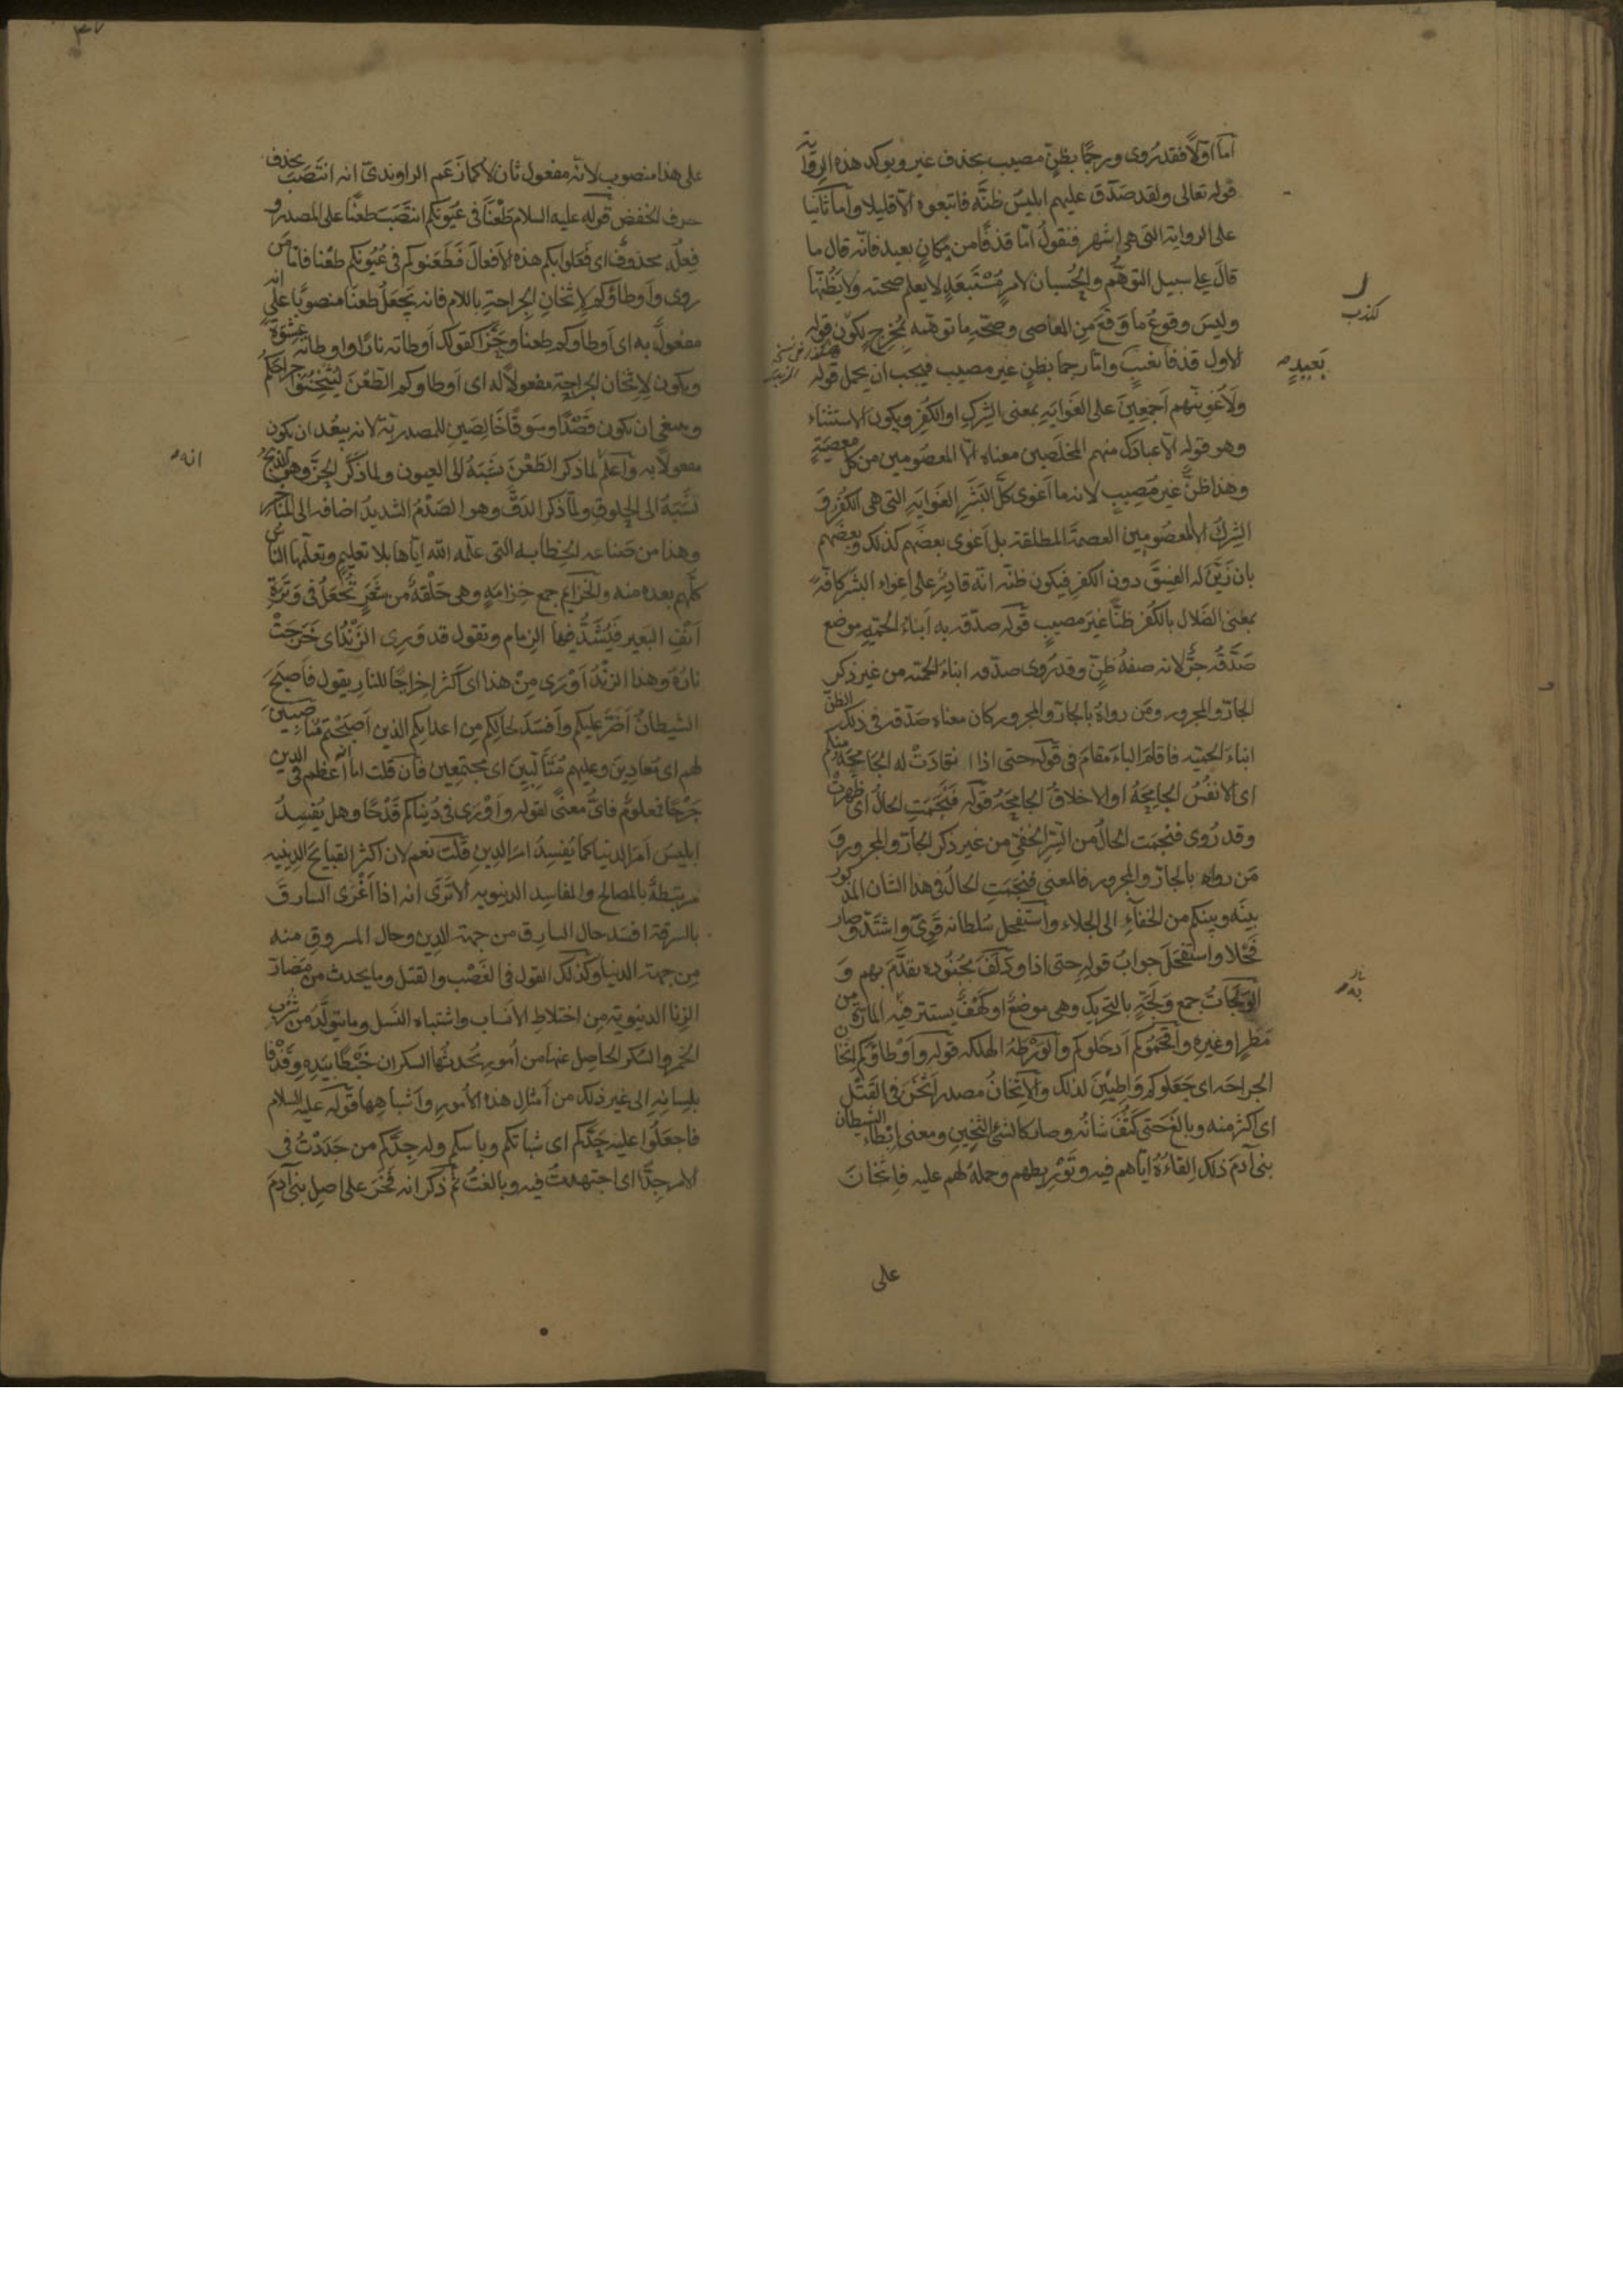 اما اولا فقد رُوى ورجمًا بظنٍّ مصيب بحذف غير ويوكد هذه الرواية
قوله تعالى ولقد صدّق عليهم ابليسُ ظنّه فاتبعوه الّا قليلا واما ثانيا
على الرواية التى هى اشهر فنقولُ امّا قذفًا من مكانٍ بعيد فانّه قال ما
قال على سبيل التوهّم والحُسبان لامرٍ مُسْتَبعَدٍ لا يعلم صحته ولا يظُنّها
وليسَ وقوعُ ما وقعَ مِن المعاصى وصحّة ما توهّمه بمُخرِجٍ لكون قوله
الاول قذفا بغيبٍ وامّا رجما بظنٍ غير مصيب فيجب ان يحمل قوله
ولَأغوينّهم اَجمعِينَ على الغَوايَةِ بمعنى الشِركِ او الكُفرِ ويكون الاستثناء
وهو قوله الّا عبادك منهم المخلَصين معناه الّا المعصُومين من كل معصيةٍ
وهذا ظنٌّ غير مُصِيبٍ لانه ما اَغوى كلَّ البَشَرِ الغَوايةِ التى هى الكُفر و
الشِركُ الّا المعصُومين العصمةَ المطلقة بل اَغوى بعضَهم كذلك وبعضَهم
بان زَيَّنَ له الفِسقَ دون الكفر فيكون ظنّه انّه قادِرٌ على اِغواء البشَر كافّةً
بمعنى الضّلال بالكُفر ظنًّا غيرَ مصيبٍ قوله صدّقه به اَبناءُ الحميّة موضع
صَدَّقَهُ جرٌّ لانه صفةُ ظنٍّ وقد رُوى صدّقه ابناءُ الحميّة من غير ذكر
الجارّ والمجرور ومَن رواهُ بالجارّ والمجرور كان معناه صَدّقه فى ذلك الظنّ
ابناءُ الحميّة فاقام الباءَ مقامَ فى قوله حتى اذا انقادَتْ له الجامِحَةُ منكم
اى الانفُسُ الجامِحَةُ او الاخلاقُ الجامِحَةُ قوله فنَجَمَتِ الحالُ اى ظَهرتْ
وقد رُوى فنجمَت الحالُ من السِرّ الخفىّ من غير ذكر الجارّ والمجرور و
مَن رواه بالجارّ والمجرور فالمعنى فنجَمَتِ الحالُ فى هذا الشان المذكور
بينَه وبينكم من الخفاءِ الى الجلاء واستفحل سُلطانه قَوِىَ واشتدّ وصار
فَحْلا واستفحَلَ جوابُ قوله حتى اذا ودَلَفَ بجُنُوده تقدَّمَ بهم و
الوَلَجاتُ جمع وَلَجَةٍ بالتحريك وهى موضعٌ او كهْفٌ يستتر فيه المارّة من
مَطرٍ او غيره واقحَمُوكم اَدخَلوكم والوَرْطةُ الهلكه قوله واَوْطاؤكم اِثخان
الجراحَه اى جَعَلوكم وَاطِئِينَ لذلك والاِثخانُ مصدر اَثْخَنَ فى القَتْلِ
اى اكثر منه وبالغَ حَتى كثُفَ شانُه وصار كالشئ الثخينِ ومعنى ايْطاءِ الشيطان
بنى آدمَ ذلك القاءُه ايّاهم فيه وتَوْرِيطهم وحملهُ لهم عليه فاثخانَ
على
كذب
بَعيدٍ
به
على هذا منصوب لانّه مفعول ثان لا كما زعَم الراوندىّ انه انتصَبَ بحذف
حرف الخفض قوله عليه السلام طَعْنًا فى عُيُونكم انتَصَبَ طعنًا على المصدر و
فِعلُه محذوفٌ اى فَعَلوا بكم هذه الاَفعالَ فَطَعَنوكم فى عُيُونكم طَعْنا فامّا مَن
روى واَوطاؤكم لاِثخانِ الجراحةِ باللام فانه يَجعَلُ طعنًا منصوبًا على انّه
مفعولٌ به اى اَوطاوكم طعنا وحَزًّا كقولك اَوطاتُه نارًا واوطاته عشوَةً
ويكون لاِثخان الجراحة مفعولًا له اى اَوطاوكم الطَعْنَ ليُثخِنُوا جراحَكُم
وينبغى ان يكون قَصْدًا وسَوقًا خَالِصَينِ للمصدريّة لانه يبعُد ان يكون
مفعولًا به واعلم لماذكر الطَعْنَ نَسَبَهُ الى العيون ولما ذكَر الحزَّ وهو الذبحُ
نَسَبَهُ الى الحلوقِ ولمّا ذكر الدَقَّ وهو الصَدْمُ الشديدُ اضافه الى المناخر
وهذا من صَناعه الخِطابه التى علّمه الله ايّاها بلا تعليمٍ وتعلّمها الناسُ
كلّهم بعده منه والخزائم جمع خِزامَةٍ وهى حَلْقَةٌ من شعَرٍ تُجعَلُ فى وَتَرةِ
اَنْفِ البَعير فيُشَدُّ فيها الزِمام وتقول قد وَرِى الزَنْدُ اى خَرجَتْ
نارُهُ وهذا الزَنْدُ اَوْرَى مِنْ هذا اى اَكثر اِخراجًا للنارِ يقول فاَصبَحَ
الشيطانُ اَضَرَّ عليكم واَفسَدَ لحالِكم مِن اعدائكم الذين اَصبَحْتم مُناصِبِينَ
لهم اى مُعادِينَ وعليهم مُتَاَلّبِينَ اى مُجتمِعين فان قلت اما اَعظم فى الدين
جَرْحًا فمعلومٌ فاىُّ معنًى لقوله واَوْرَى فى دُنياكم قَدْحًا وهل يُفسِدُ
ابليسُ اَمرَ الدنيا كما يُفسِدُ امرَ الدِينِ قُلْت نعم لان اكثر القبائح الدِينيه
مرتبطةٌ بالمصالح والمفاسِد الدنيويه الا تَرَى انه اذا اَغْرَى السارقَ
بالسرقة افسَد حال السارق من جهة الدين وحال المسروقِ منه
مِن جهة الدنيا وكذلك القول فى الغَصْب والقتل وما يحدث من مَضارّ
الزنا الدنيويّة مِن اختلاطِ الاَنساب واشتباه النَسل وما يتولَّدُ من شُربِ
الخمر والسُكر الحاصِل عنها من اُمورٍ يُحدثُها السكران خَبْطًا بيَدِه وقَذْفًا
بلِسانِه الى غير ذلك من اَمثال هذه الاُمورِ واَشباهِها قوله عليه السلام
فاجعَلُوا عليه حَدَّكم اى شباتكم وباسكم وله جِدَّكم من جَدَدْتُ فى
الامر جِدًّا اى اجتهدتُ فيه وبالغتُ ثم ذكر انه فَخَرَ على اصلِ بنى آدمَ
انه